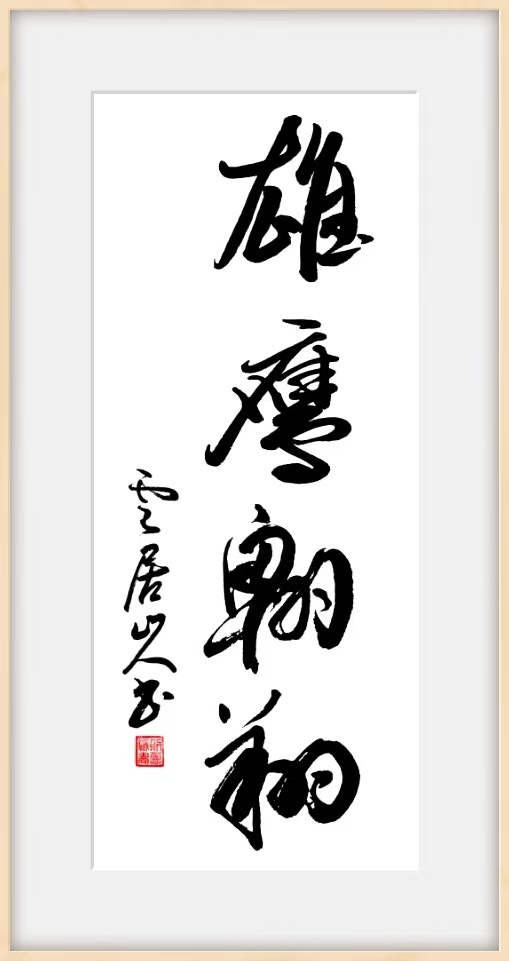 雄鹰翱翔
雲居山人书